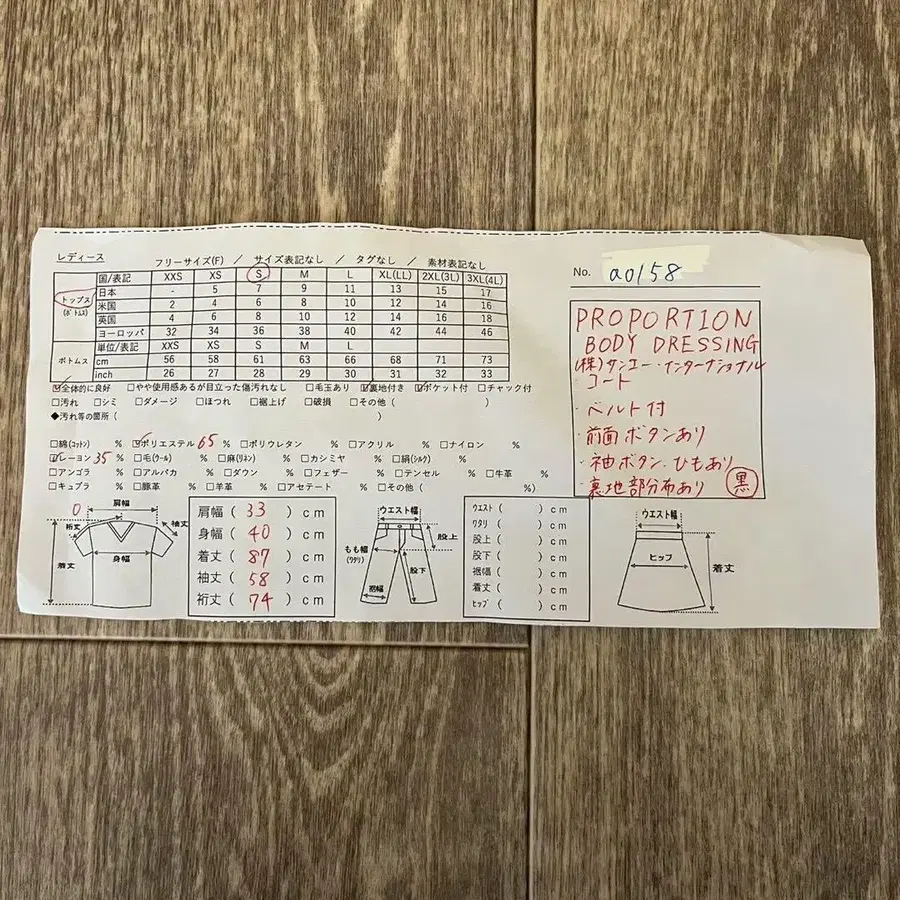 レディース
フリーサイズ(F) ／ サイズ表記なし ／ タグなし ／ 素材表記なし
国/表記 XXS XS S M L XL(LL) 2XL(3L) 3XL(4L)
トップス 日本 - 5 7 9 11 13 15 17
(ﾎﾞﾄﾑｽ) 米国 2 4 6 8 10 12 14 16
英国 4 6 8 10 12 14 16 18
ヨーロッパ 32 34 36 38 40 42 44 46
単位/表記 XXS XS S M L
ボトムス cm 56 58 61 63 66 68 71 73
inch 26 27 28 29 30 31 32 33
☑全体的に良好 □やや使用感あるが目立った傷汚れなし □毛玉あり ☑裏地付き ☑ポケット付 □チャック付
□汚れ □シミ □ダメージ □ほつれ □裾上げ □破損 □その他 ( )
◆汚れ等の箇所 ( )
□綿(ｺｯﾄﾝ) % ☑ポリエステル 65 % □ポリウレタン % □アクリル % □ナイロン %
☑レーヨン 35 % □毛(ｳｰﾙ) % □麻(ﾘﾈﾝ) % □カシミヤ % □絹(ｼﾙｸ) %
□アンゴラ % □アルパカ % □ダウン % □フェザー % □テンセル % □牛革 %
□キュプラ % □豚革 % □羊革 % □アセテート % □その他 ( %)
No. a0158
PROPORTION
BODY DRESSING
(株)サンエー・インターナショナル
コート
・ベルト付
・前面ボタンあり
・袖ボタン、ひもあり
・裏地部分布あり 黒
0
肩幅
裄丈
袖丈
身幅
着丈
肩幅 ( 33 ) cm
身幅 ( 40 ) cm
着丈 ( 87 ) cm
袖丈 ( 58 ) cm
裄丈 ( 74 ) cm
ウエスト幅
股上
もも幅
(ﾜﾀﾘ)
股下
裾幅
ｳｴｽﾄ ( ) cm
ﾜﾀﾘ ( ) cm
股上 ( ) cm
股下 ( ) cm
裾幅 ( ) cm
着丈 ( ) cm
ﾋｯﾌﾟ ( ) cm
ウエスト幅
ヒップ
着丈